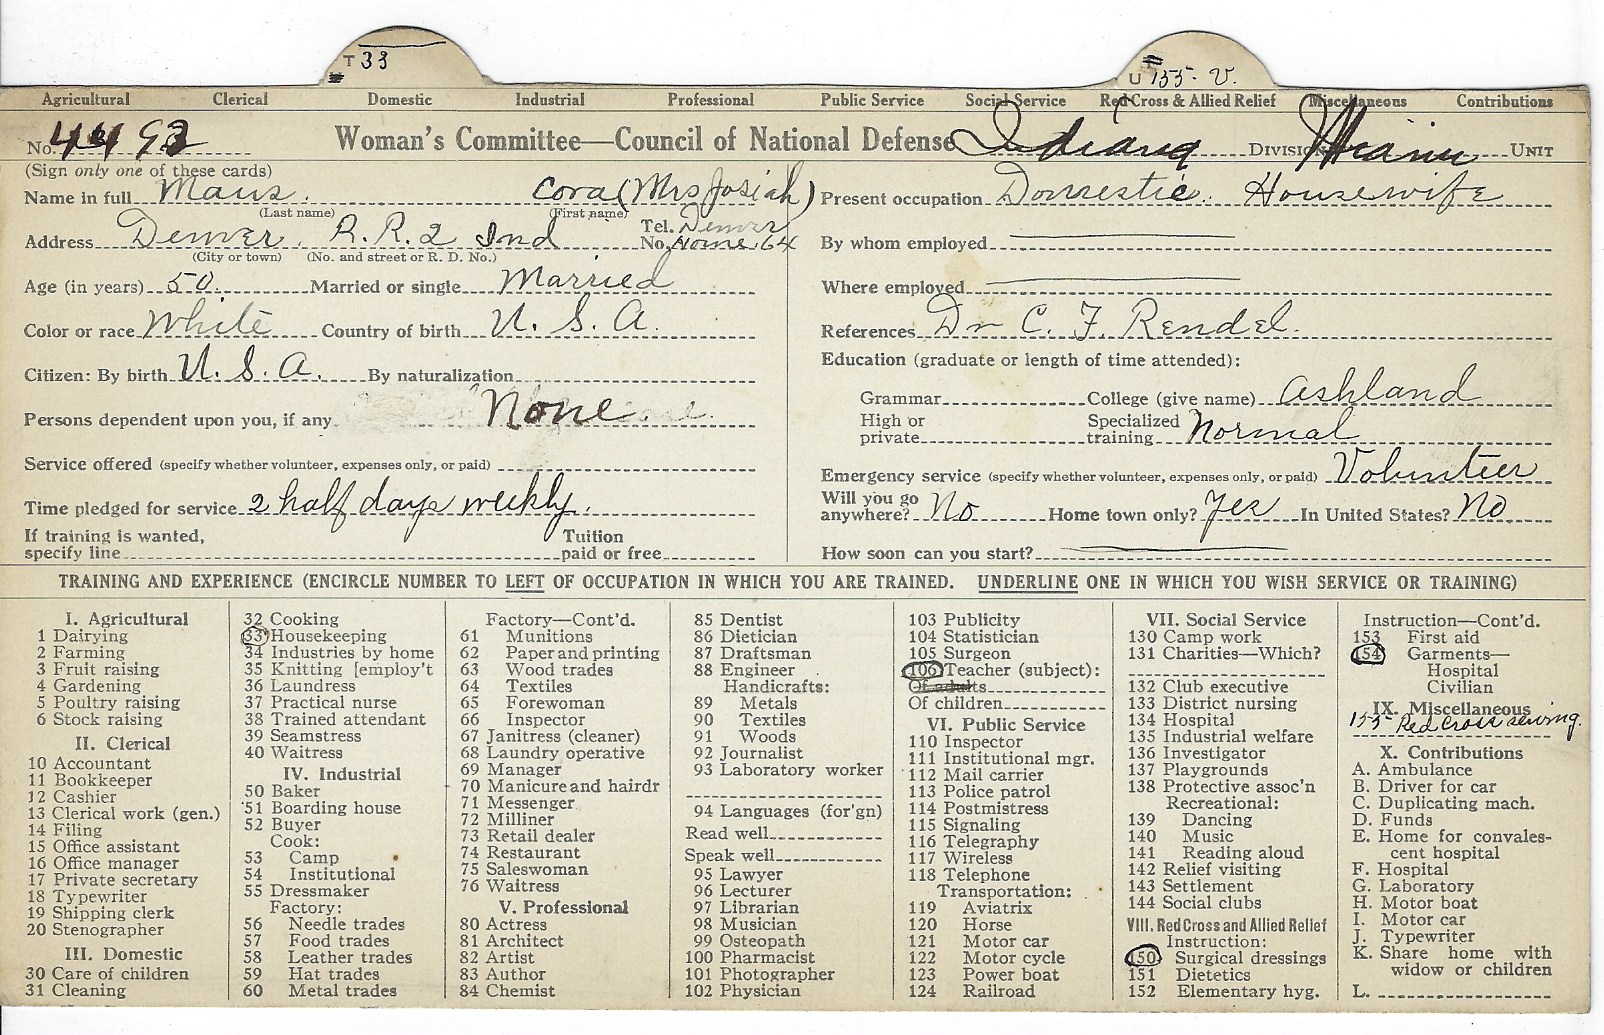 T 33
U 155- V.
Agricultural Clerical Domestic Industrial Professional Public Service Social Service Red Cross & Allied Relief Miscellaneous Contributions
No. 4493 Woman's Committee—Council of National Defense Indiana DIVISION Miami UNIT
(Sign only one of these cards)
Name in full Maus. Cora (Mrs Josiah)
(Last name) (First name)
Address Denver. R.R. 2 Ind Tel. No. Denver Home 64
(City or town) (No. and street or R. D. No.)
Age (in years) 50. Married or single Married
Color or race White Country of birth U. S. A.
Citizen: By birth U. S. A. By naturalization
Persons dependent upon you, if any None
Service offered (specify whether volunteer, expenses only, or paid)
Time pledged for service 2 half days weekly.
If training is wanted, specify line
Tuition paid or free
Present occupation Domestic. Housewife
By whom employed
Where employed
References Dr C. F. Rendel.
Education (graduate or length of time attended):
Grammar College (give name) Ashland
High or private Specialized training Normal
Emergency service (specify whether volunteer, expenses only, or paid) Volunteer
Will you go anywhere? No Home town only? Yes In United States? No
How soon can you start?
TRAINING AND EXPERIENCE (ENCIRCLE NUMBER TO LEFT OF OCCUPATION IN WHICH YOU ARE TRAINED. UNDERLINE ONE IN WHICH YOU WISH SERVICE OR TRAINING)
I. Agricultural
1 Dairying
2 Farming
3 Fruit raising
4 Gardening
5 Poultry raising
6 Stock raising
II. Clerical
10 Accountant
11 Bookkeeper
12 Cashier
13 Clerical work (gen.)
14 Filing
15 Office assistant
16 Office manager
17 Private secretary
18 Typewriter
19 Shipping clerk
20 Stenographer
III. Domestic
30 Care of children
31 Cleaning
32 Cooking
33 Housekeeping
34 Industries by home
35 Knitting [employ't
36 Laundress
37 Practical nurse
38 Trained attendant
39 Seamstress
40 Waitress
IV. Industrial
50 Baker
51 Boarding house
52 Buyer
Cook:
53 Camp
54 Institutional
55 Dressmaker
Factory:
56 Needle trades
57 Food trades
58 Leather trades
59 Hat trades
60 Metal trades
Factory—Cont'd.
61 Munitions
62 Paper and printing
63 Wood trades
64 Textiles
65 Forewoman
66 Inspector
67 Janitress (cleaner)
68 Laundry operative
69 Manager
70 Manicure and hairdr
71 Messenger
72 Milliner
73 Retail dealer
74 Restaurant
75 Saleswoman
76 Waitress
V. Professional
80 Actress
81 Architect
82 Artist
83 Author
84 Chemist
85 Dentist
86 Dietician
87 Draftsman
88 Engineer
Handicrafts:
89 Metals
90 Textiles
91 Woods
92 Journalist
93 Laboratory worker
94 Languages (for'gn)
Read well
Speak well
95 Lawyer
96 Lecturer
97 Librarian
98 Musician
99 Osteopath
100 Pharmacist
101 Photographer
102 Physician
103 Publicity
104 Statistician
105 Surgeon
106 Teacher (subject):
Of adults
Of children
VI. Public Service
110 Inspector
111 Institutional mgr.
112 Mail carrier
113 Police patrol
114 Postmistress
115 Signaling
116 Telegraphy
117 Wireless
118 Telephone
Transportation:
119 Aviatrix
120 Horse
121 Motor car
122 Motor cycle
123 Power boat
124 Railroad
VII. Social Service
130 Camp work
131 Charities—Which?
132 Club executive
133 District nursing
134 Hospital
135 Industrial welfare
136 Investigator
137 Playgrounds
138 Protective assoc'n
Recreational:
139 Dancing
140 Music
141 Reading aloud
142 Relief visiting
143 Settlement
144 Social clubs
VIII. Red Cross and Allied Relief
Instruction:
150 Surgical dressings
151 Dietetics
152 Elementary hyg.
Instruction—Cont'd.
153 First aid
154 Garments—
Hospital
Civilian
IX. Miscellaneous
155- Red Cross sewing.
X. Contributions
A. Ambulance
B. Driver for car
C. Duplicating mach.
D. Funds
E. Home for convales-
cent hospital
F. Hospital
G. Laboratory
H. Motor boat
I. Motor car
J. Typewriter
K. Share home with
widow or children
L.